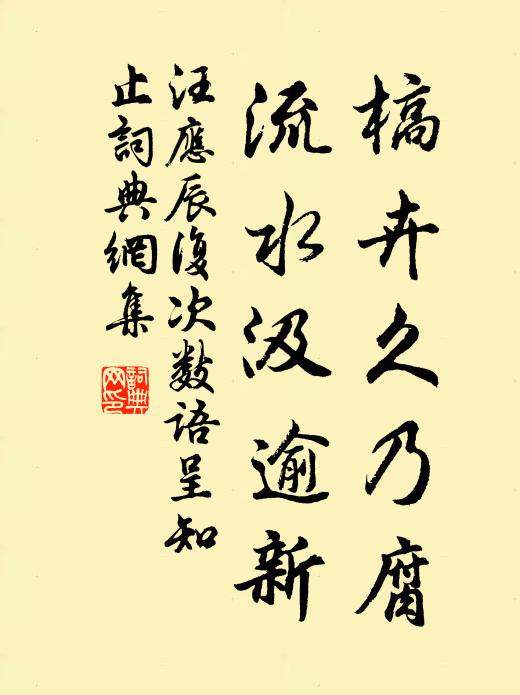 槁卉久乃腐
流水汲逾新
汪應辰復次数語呈知
止詞典網集
詞典网印